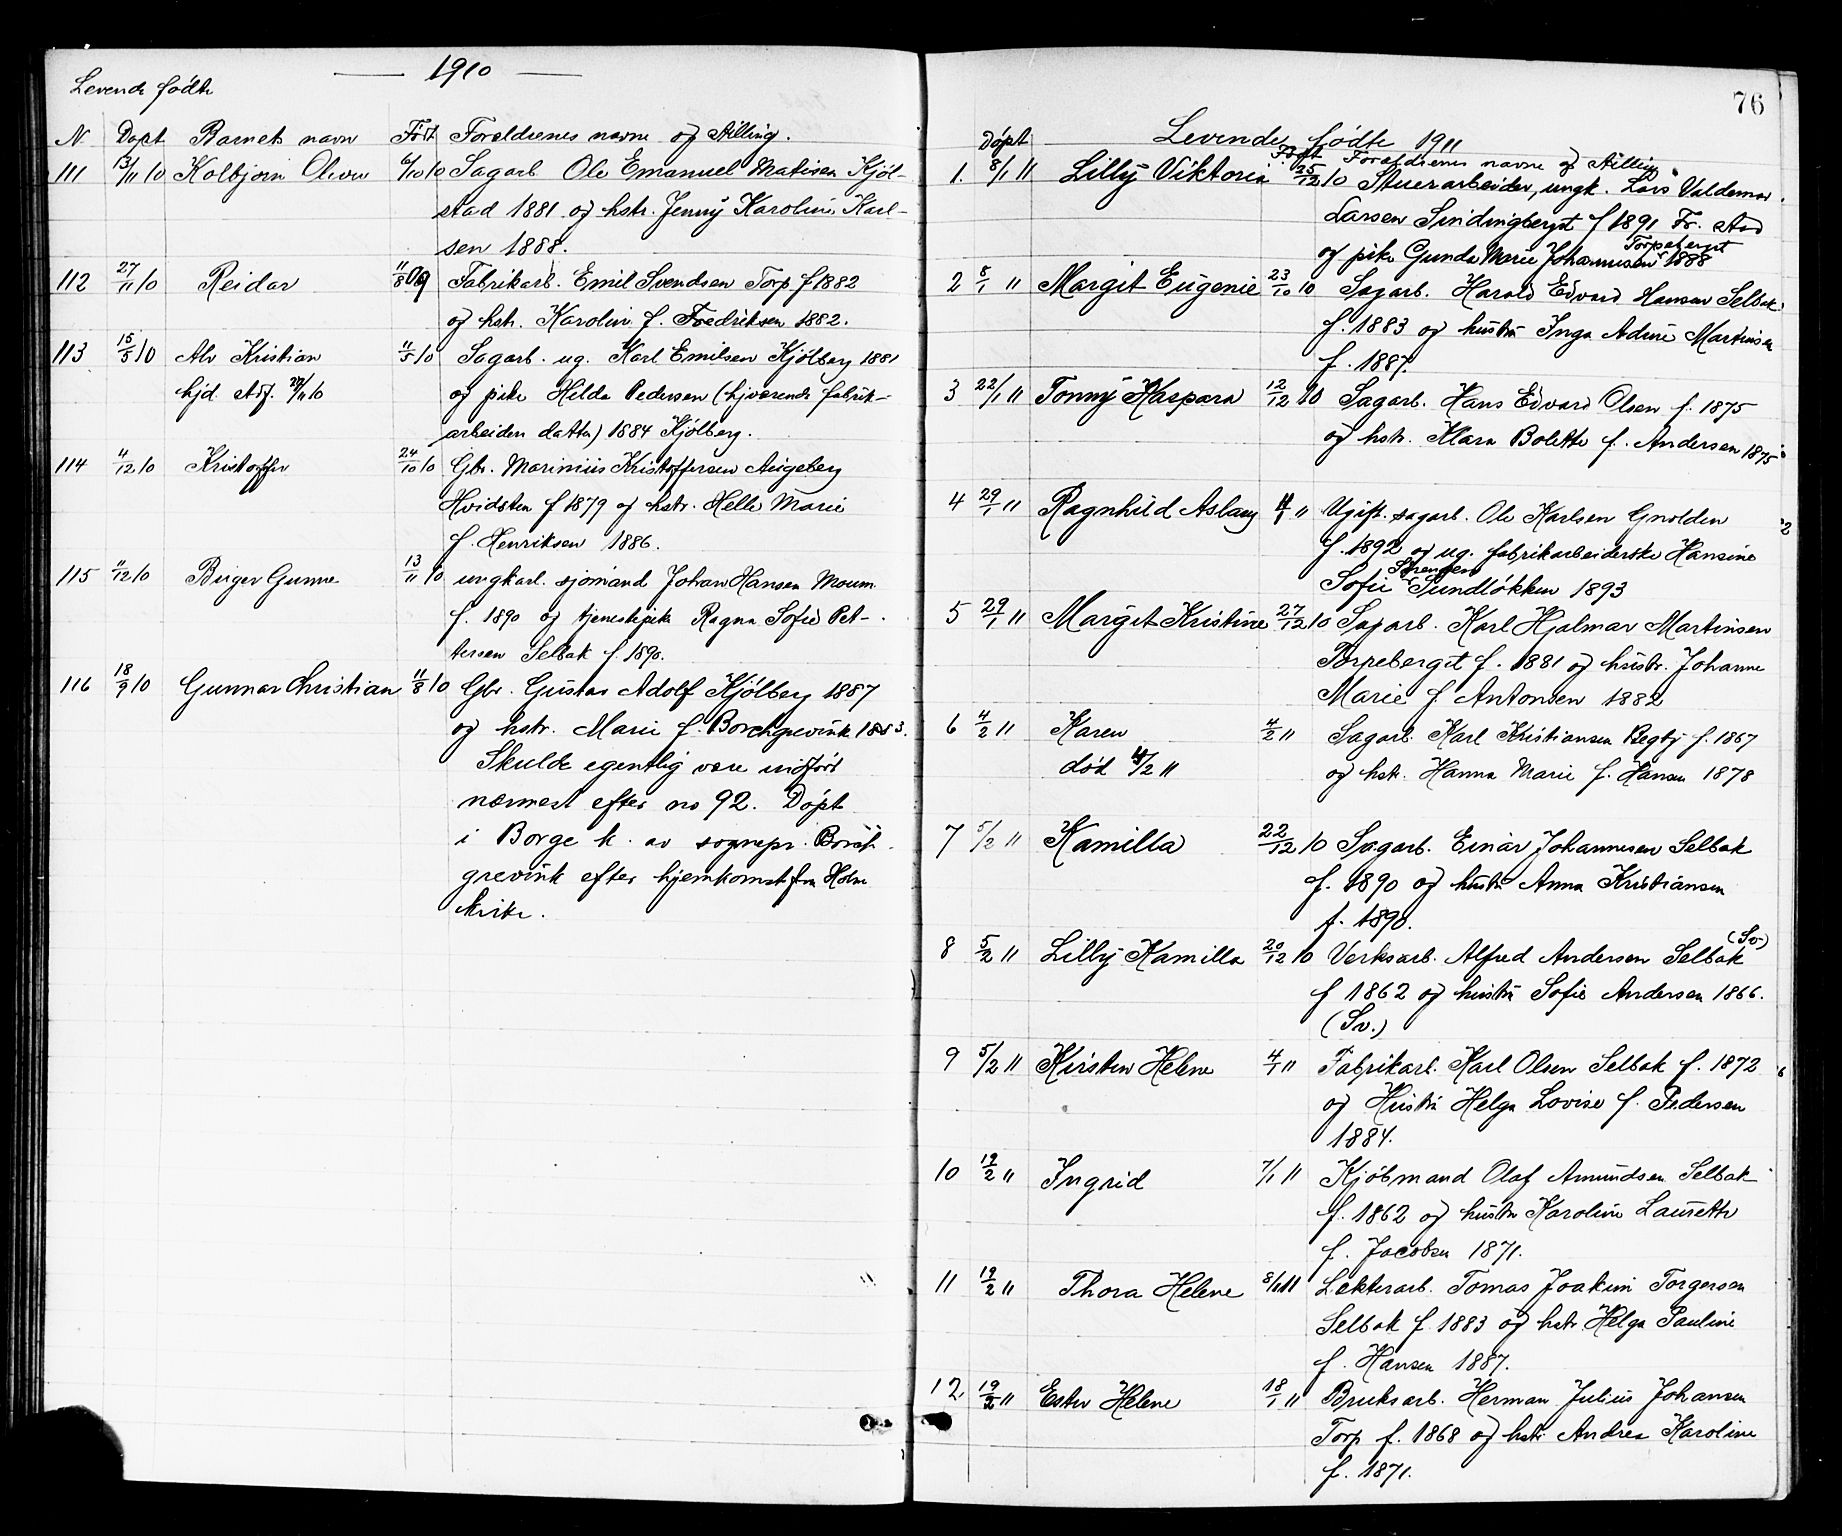 Levende fødte
1910
N Døpt Barnets navn Født Foreldrenes navne og stilling.
111 13/11 10 Kolbjørn Oliver 6/10 10 Sagarb Ole Emanuel Matisen Kjøl-
stad 1881 og hstr. Jenny Karoline Karl-
sen 1888.
112 27/11 10 Reidar 11/8 09 Fabrikarb. Emil Svendsen Torp f 1882
og hstr. Karolin f. Fredriksen 1882.
113 15/5 10 Alv Kristian 11/5 10 Sagarb. ug. Karl Emilsen Kjölberg 1881
hjd. 27/11 10 og pike Hilda Pedersen (hjværende fabrik-
arbeider datter) 1884 Kjölberg.
114 4/12 10 Kristoffer 24/10 10 Gbr. Marinius Kristoffersen
Hvidsten f 1879 og hstr. Helle Marie
f. Henriksen 1886.
115 11/12 10 Birger Gunne 13/11 10 ungkarl. sjømand Johan Hansen Moum
f. 1890 og tjenestepike Ragna Sofie Pet-
tersen Selbak f. 1890.
116 18/9 10 Gunnar Christian 11/8 10 Gbr. Gustav Adolf Kjölberg 1887
og hstr. Marie f. Borchgrevink 1883.
Skulde egentlig være indført
nærmest efter no 92. Døpt
i Borge k. av sognepr. Borch-
grevink efter hjemkomst fra
kirke.
76
Levende fødte 1911
Døpt Født Foreldrenes navne og stilling
1. 8/1 11 Lilly Viktoria 25/12 10 Stuerarbeider, ungk. Lars Valdemar
Larsen Sindingberget f 1891 Fr. stad
Torpeberget
og pike Gunda Marie Johannesen 1888
2 8/1 11 Margit Eugenie 23/10 10 Sagarb. Harald Edvard Hansen Selbak
f. 1883 og hustru Inga Adine Martinsen
f. 1887.
3 22/1 11 Tonny Kaspara 12/12 10 Sagarb. Hans Edvard Olsen f. 1875
og hstr. Klara Bolette f. Andersen 1875
4 29/1 11 Ragnhild Aslaug 4/1 11 Ugift. sagarb. Ole Karlsen Gnolden
f. 1892 og ug. fabrikarbeiderske Hansine
Sofie Sundløkken 1893
5 29/1 11 Margit Kristine 27/12 10 Sagarb. Karl Hjalmar Martinsen
Torpeberget f. 1881 og hustr. Johanne
Marie f Antonsen 1882
6 4/2 11 Karen 4/2 11 Sagarb. Karl Kristiansen Begby f. 1867
død 4/2 11 og hstr. Hanna Marie f. Hansen 1878
7 5/2 11 Kamilla 22/12 10 Sagarb. Einar Johannesen Selbak
f. 1890 og hustru Anna Kristiansen
f. 1890.
8 5/2 11 Lilly Kamilla 20/12 10 Verksarb. Alfred Andersen Selbak (Sv.)
f 1862 og hustru Sofie Andersen 1866.
(Sv.)
9 5/2 11 Kirsten Helene 4/1 11 Fabrikarb. Karl Olsen Selbak f. 1872
og Hustru Helga Lovise f. Pedersen
1884.
10 19/2 11 Ingrid 7/1 11 Kjøbmand Olaf Amundsen Selbak
f. 1862 og hustru Karoline Laurette
f. Jacobsen 1871.
11 19/2 11 Thora Helene 8/1 11 Lekterarb. Tomas Joakim Torgersen
Selbak f. 1883 og hstr Helga Pauline
f. Hansen 1887.
12 19/2 11 Ester Helene 18/1 11 Bruksarb. Herman Julius Johansen
Torp f. 1868 og hstr Andrea Karoline
f. 1871.